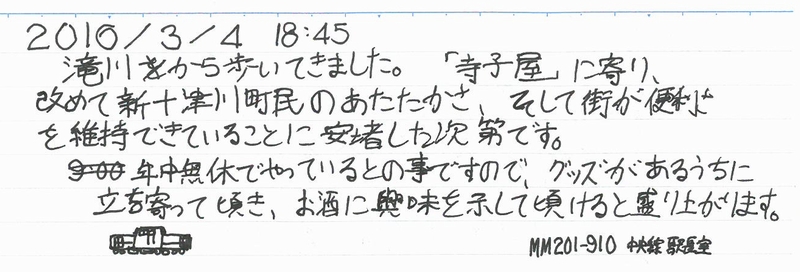 2016/3/4 18:45
滝川から歩いてきました。「寺子屋」に寄り、
改めて新十津川町民のあたたかさ、そして街が便利さ
を維持できていることに安堵した次第です。
9:00 年中無休でやっているとの事ですので、グッズがあるうちに
立ち寄って頂き、お酒に興味を示して頂けると盛り上がります。
MM201-910 中央線駅長室